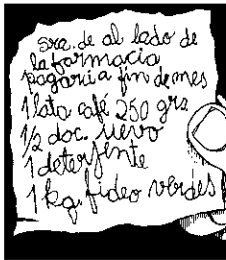 sra. de al lado de
la farmacia
pagaria a fin de mes
1 lata café 250 grs
1/2 doc. uevo
1 deterjente
1 kg. fideo verdes